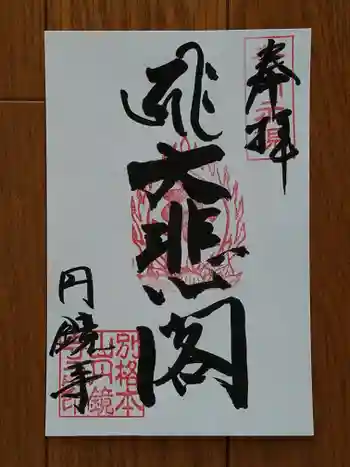 奉拝
大悲閣
円鏡寺
別格本
山円鏡
寺印